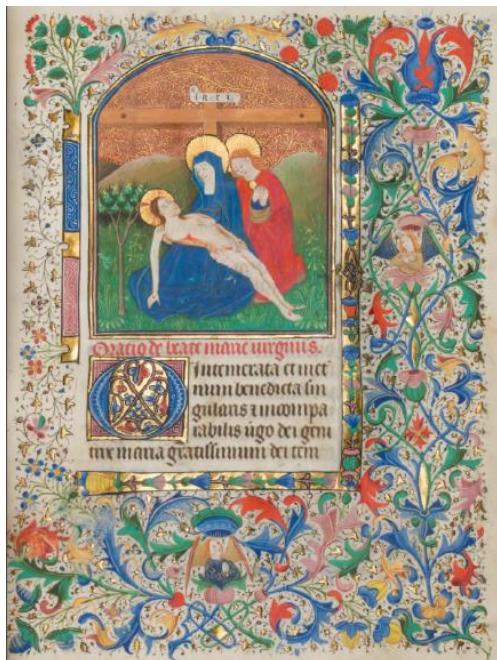 inri
Oratio de beate marie virginis.
O intemerata et in et
num benedicta sin
gularis ⁊ incompa
rabilis ũgo dei geni
trix maria gratissimum dei tem